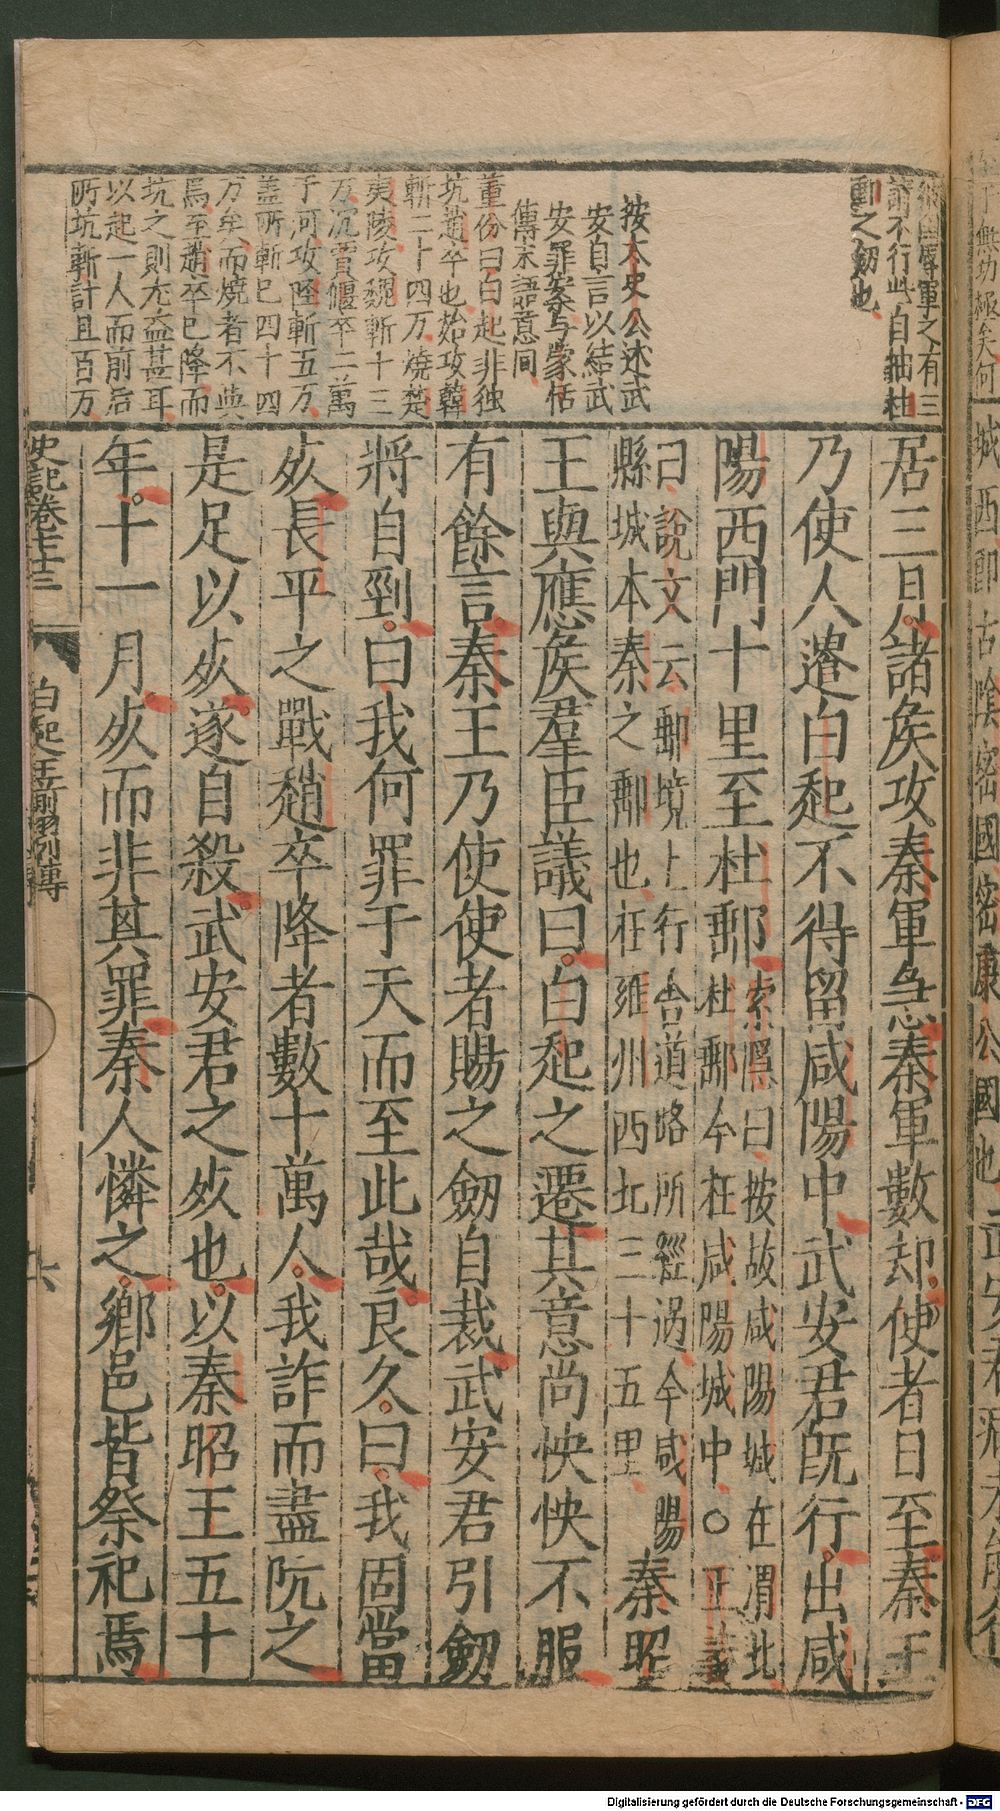 彼國辱軍之有三
謝不行此自抽杜
郵之劒也
按太史公述武
安自言以結武
安罪案与蒙恬
傳末語意同
董份曰白起非独
坑趙卒也始攻韓
斬二十四万燒楚
夷陵攻魏斬十三
万沉賈偃卒二萬
于河攻陘斬五万
盖所斬巳四十四
万矣而燒者不與
焉至趙卒已降而
坑之則尤益甚耳
以起一人而前后
所坑斬計且百万
居三月諸矦攻秦軍急秦軍數却使者日至秦王
乃使人遣白起不得留咸陽中武安君既行出咸
陽西門十里至杜郵索隱曰按故咸陽城在渭北
杜郵今在咸陽城中○正義
曰說文云郵境上行舍道路所經過今咸陽
縣城本秦之郵也在雍州西北三十五里秦昭
王與應矦羣臣議曰白起之遷其意尚怏怏不服
有餘言秦王乃使使者賜之劒自裁武安君引劒
將自剄曰我何罪于天而至此哉良久曰我固當
死長平之戰趙卒降者數十萬人我詐而盡阬之
是足以死遂自殺武安君之死也以秦昭王五十
年十一月死而非其罪秦人憐之鄉邑皆祭祀焉
史記卷七十三
白起王翦列傳
六
城西即古陰密國密康公國也
Digitalisierung gefördert durch die Deutsche Forschungsgemeinschaft - DFG